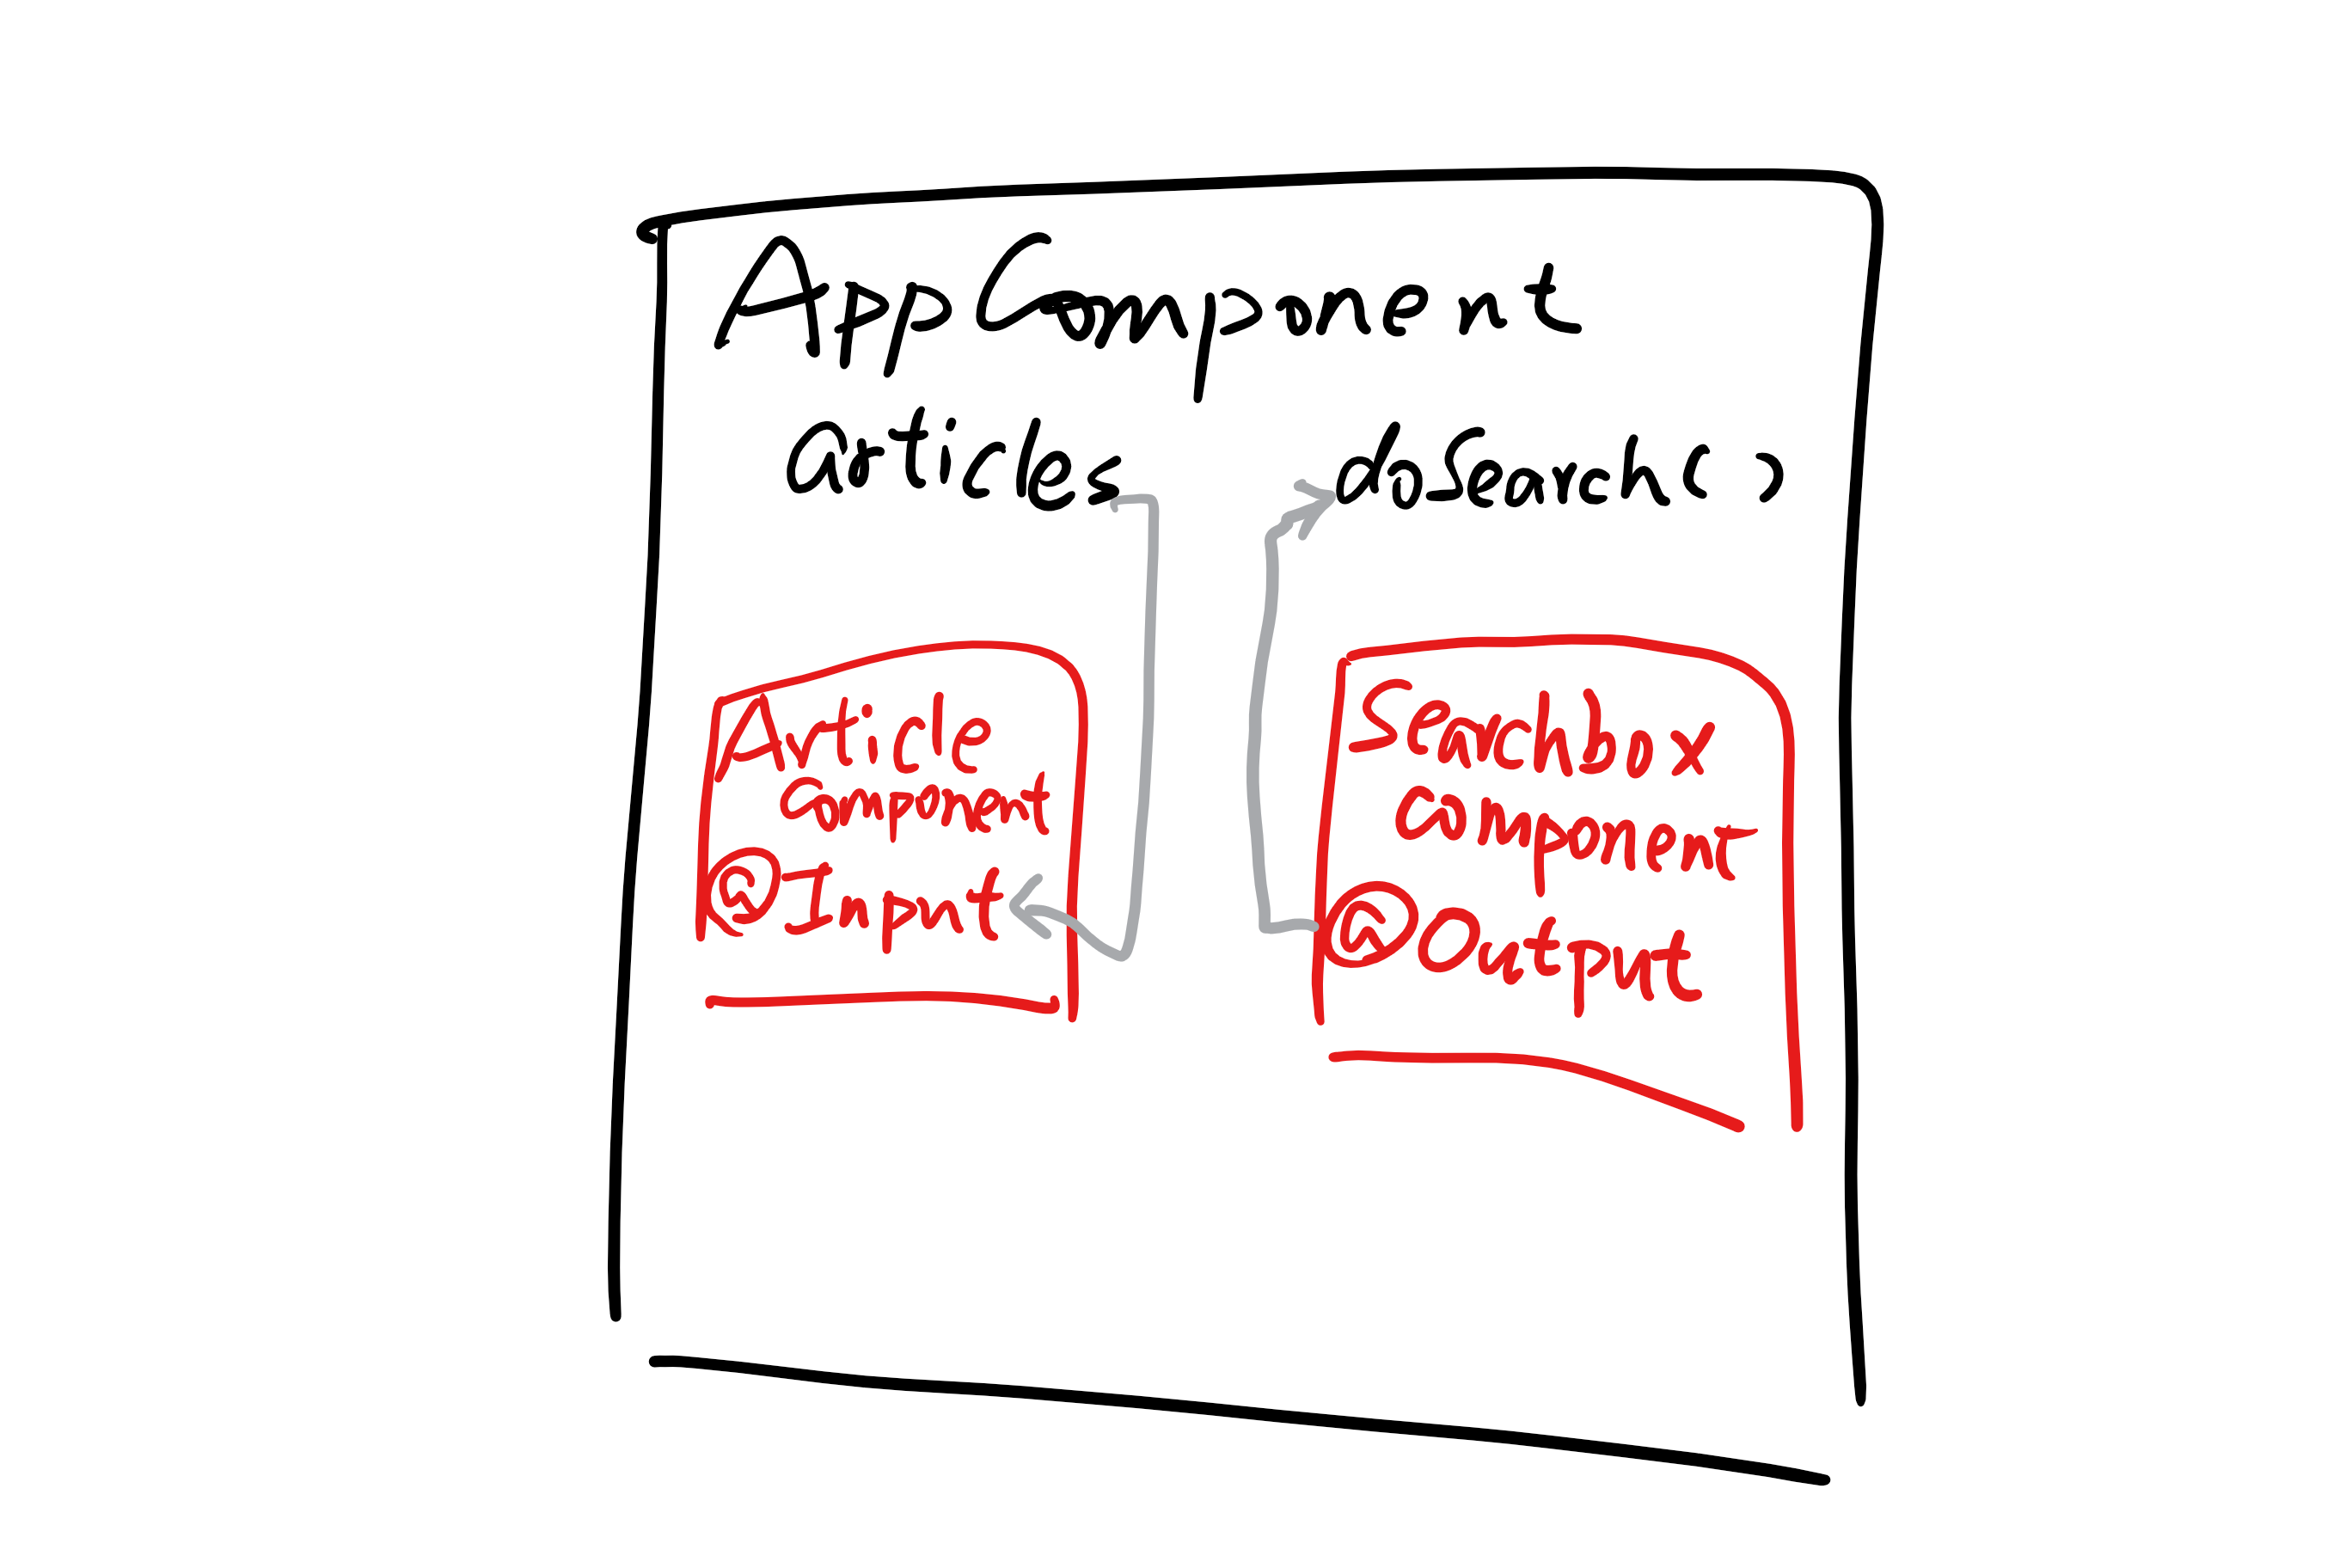 AppComponent
articles doSearch()
Article
Component
@Input
Searchbox
Component
@Output